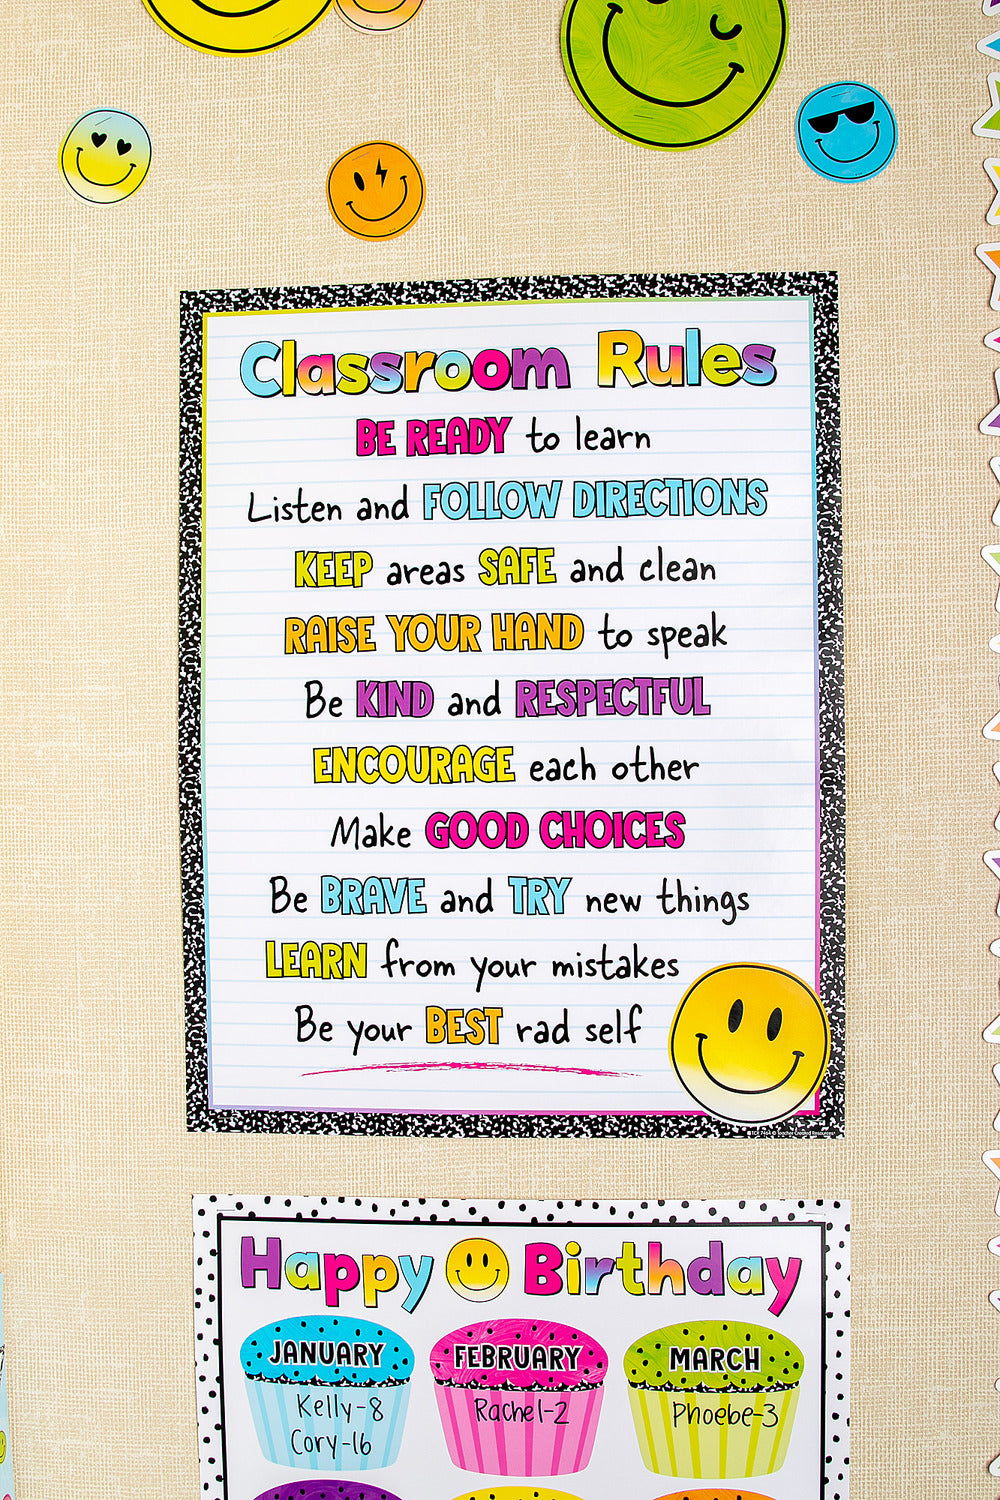 Classroom Rules
BE READY to learn
Listen and FOLLOW DIRECTIONS
KEEP areas SAFE and clean
RAISE YOUR HAND to speak
Be KIND and RESPECTFUL
ENCOURAGE each other
Make GOOD CHOICES
Be BRAVE and TRY new things
LEARN from your mistakes
Be your BEST rad self
©Teacher Created Resources
Happy Birthday
JANUARY
Kelly-8
Cory-16
FEBRUARY
Rachel-2
MARCH
Phoebe-3